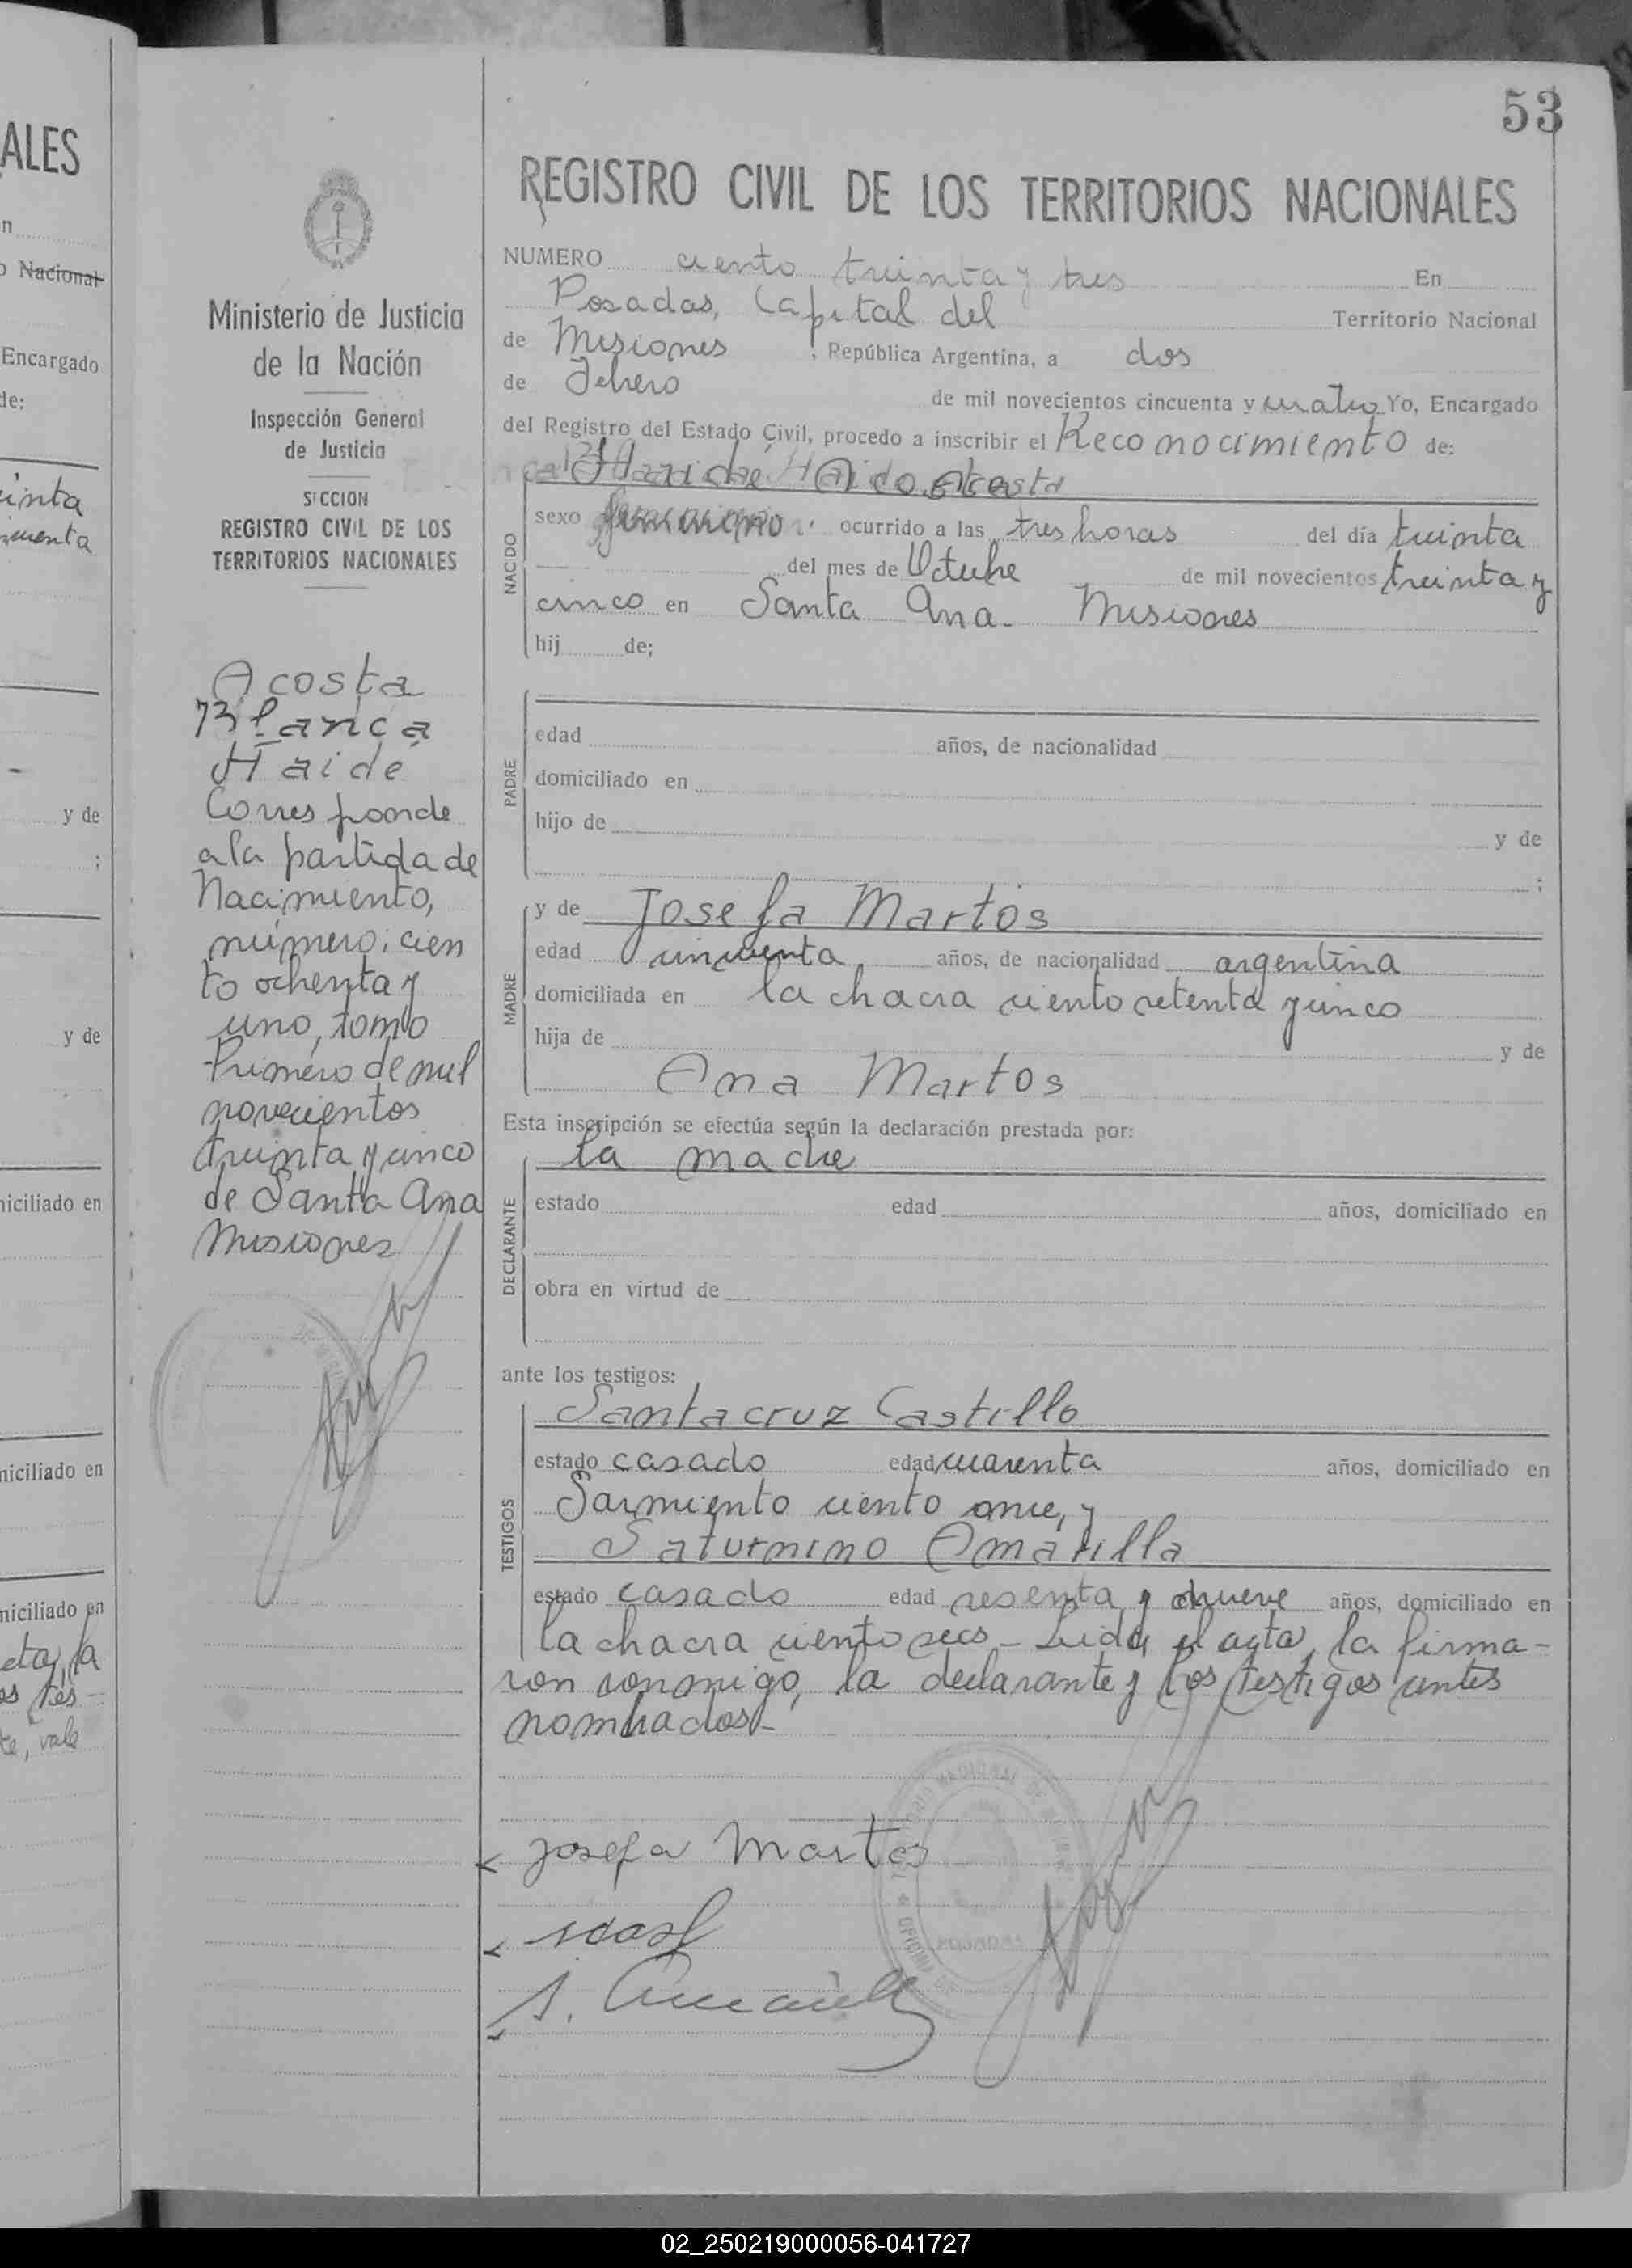 ALES
n
o Nacional
Encargado
de:
inta
cuenta
y de
;
y de
niciliado en
niciliado en
niciliado en
eta, la
os tes-
te, vale
Ministerio de Justicia
de la Nación
Inspección General
de Justicia
SECCION
REGISTRO CIVIL DE LOS
TERRITORIOS NACIONALES
Acosta
Blanca
Haidé
Corresponde
a la partida de
Nacimiento,
número: cien
to ochenta y
uno, tomo
Primero de mil
novecientos
treinta y cinco
de Santa Ana
Misiones
53
REGISTRO CIVIL DE LOS TERRITORIOS NACIONALES
NUMERO ciento treinta y tres En
Posadas, Capital del Territorio Nacional
de Misiones, República Argentina, a dos
de Febrero de mil novecientos cincuenta y cuatro Yo, Encargado
del Registro del Estado Civil, procedo a inscribir el Reconocimiento de:
Acosta
NACIDO
sexo femenino ocurrido a las tres horas del día treinta
del mes de Octubre de mil novecientos treinta y
cinco en Santa Ana. Misiones
hij de;
PADRE
edad años, de nacionalidad
domiciliado en
hijo de y de
;
MADRE
y de Josefa Martos
edad cincuenta años, de nacionalidad argentina
domiciliada en la chacra ciento setenta y cinco
hija de y de
Ana Martos
Esta inscripción se efectúa según la declaración prestada por:
la madre
DECLARANTE
estado edad años, domiciliado en
obra en virtud de
ante los testigos:
TESTIGOS
Santacruz Castillo
estado casado edad cuarenta años, domiciliado en
Sarmiento ciento once, y
Saturnino Amarilla
estado casado edad sesenta y nueve años, domiciliado en
la chacra ciento seis - Leida el acta, la firma-
ron conmigo, la declarante y los testigos antes
nombrados-
Josefa Martos
POSADAS
02_250219000056-041727